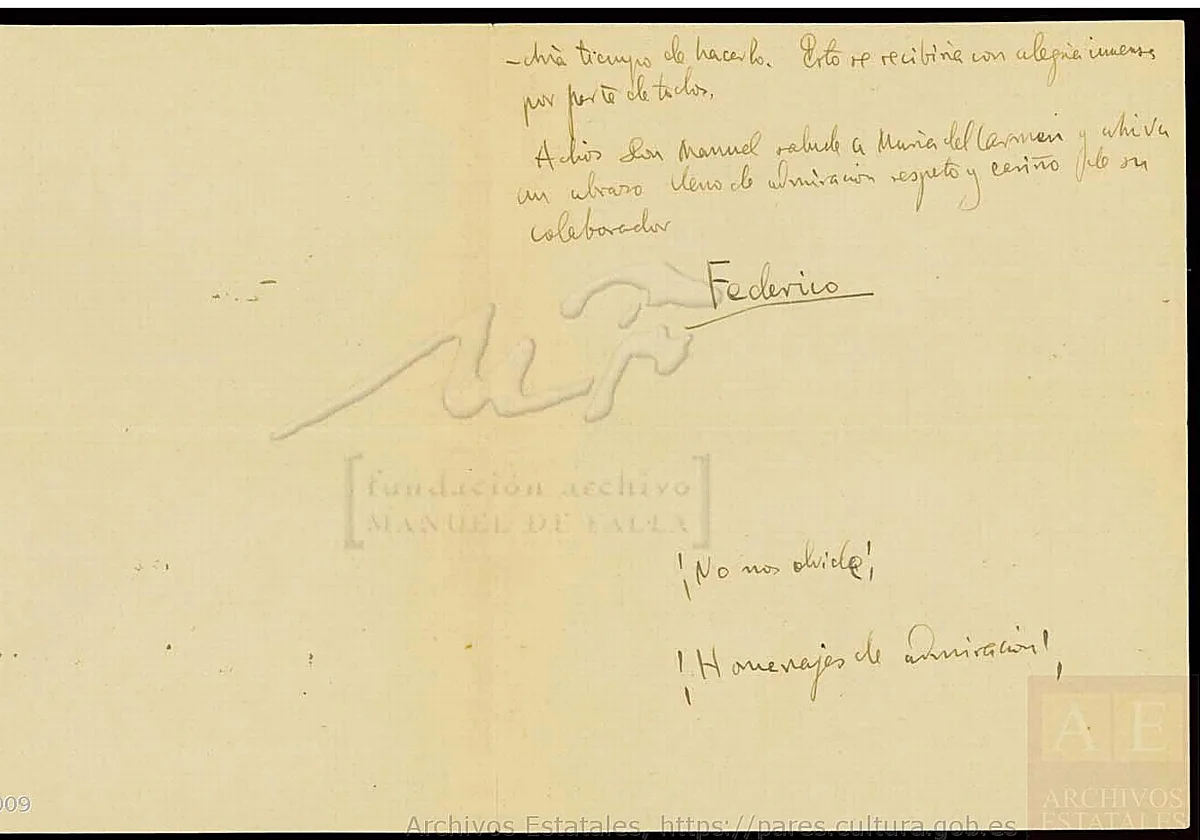 -dría tiempo de hacerlo. Esto se recibiria con alegria inmensa
por parte de todos.
Adios Don Manuel salude a Maria del Carmen y ahi va
un abrazo lleno de admiración respeto y cariño de su
colaborador
Federico
[fundación archivo
MANUEL DE FALLA]
¡No nos olvide!
¡Homenajes de admiración!
AE
ARCHIVOS
ESTATALES
009
Archivos Estatales, https://pares.cultura.gob.es